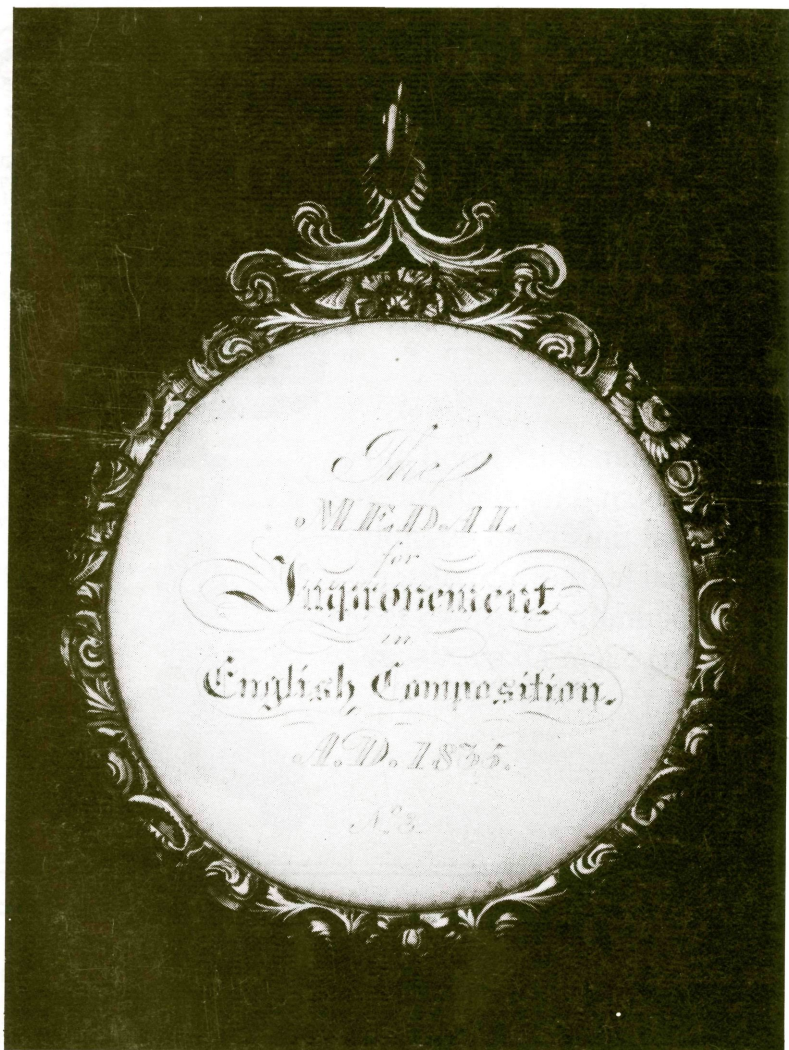 The
MEDAL
for
Improvement
in
English Composition.
A.D. 1835.
No 3.